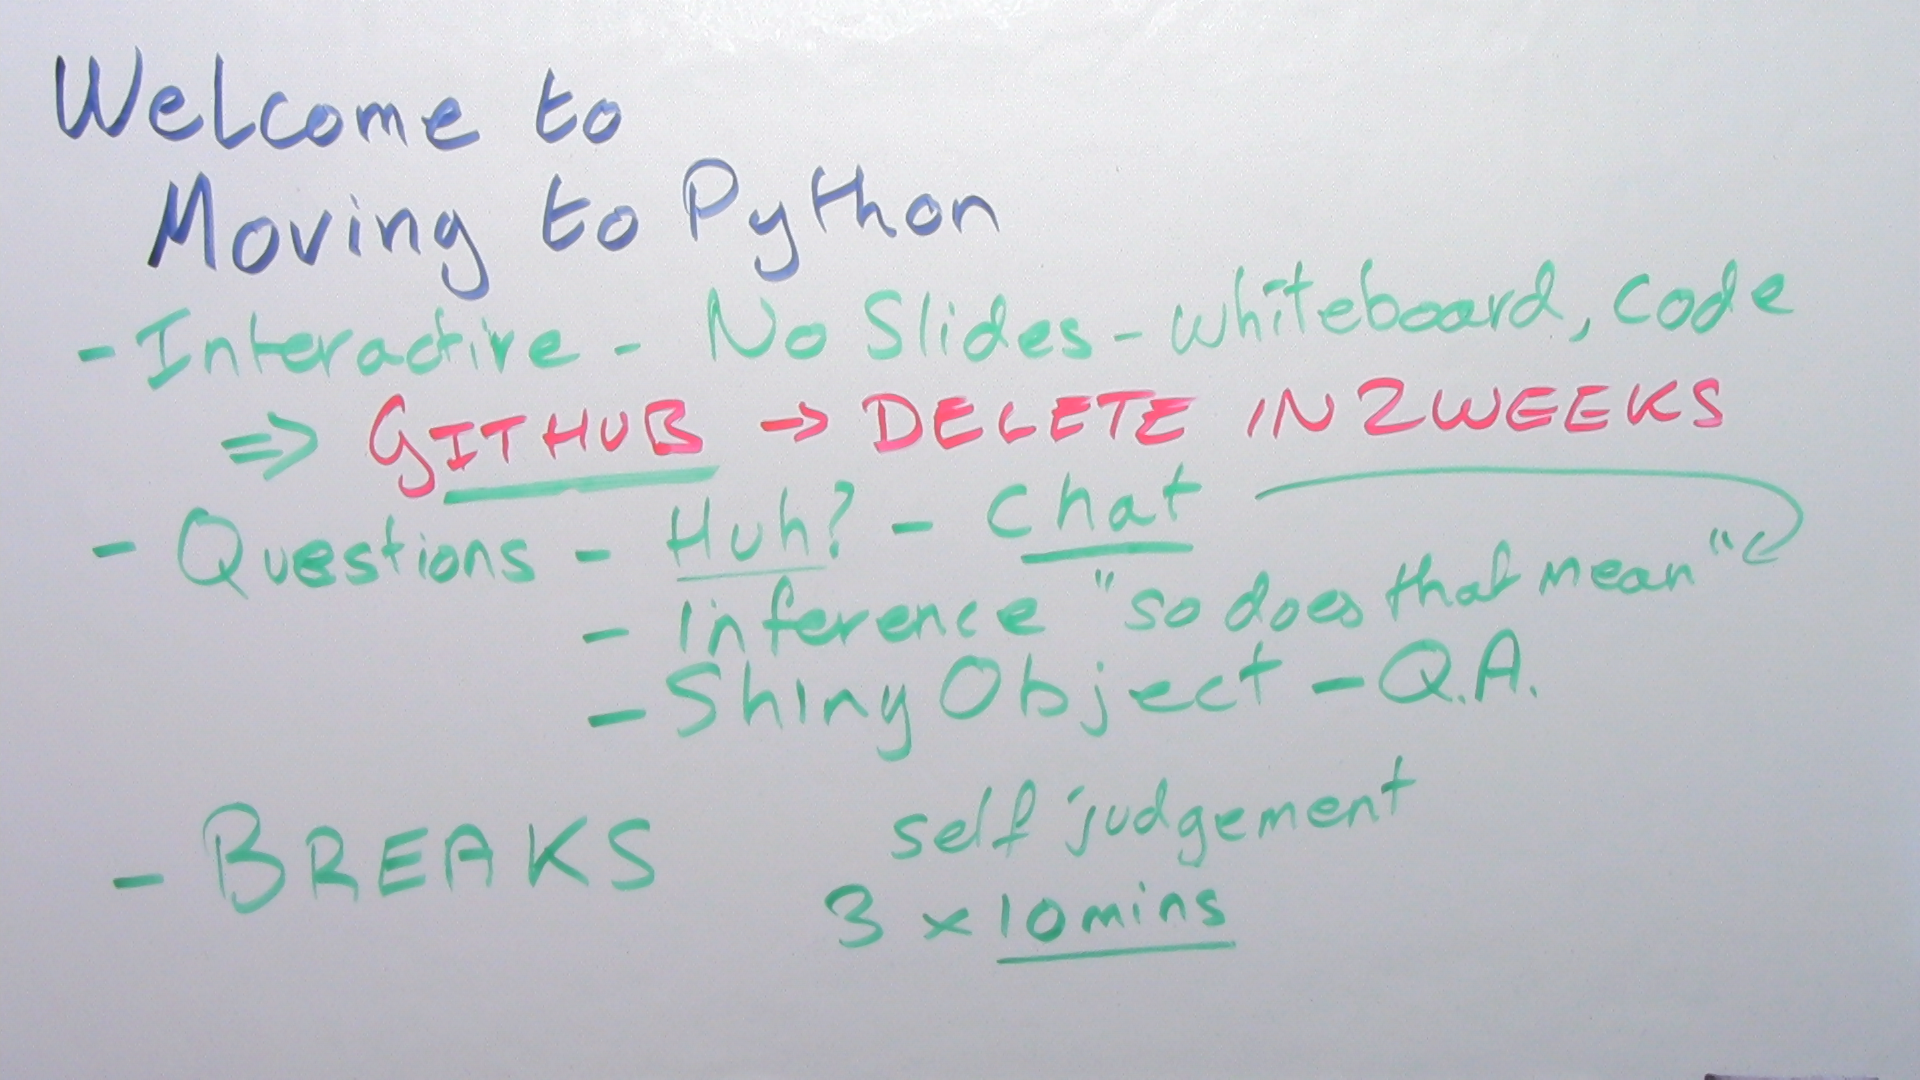 Welcome to
Moving to Python
- Interactive - No Slides - whiteboard, code
⇒ GITHUB → DELETE IN 2 WEEKS
- Questions - Huh? - Chat
- inference "so does that mean"
- Shiny Object - Q.A.
- BREAKS
self judgement
3 x 10 mins